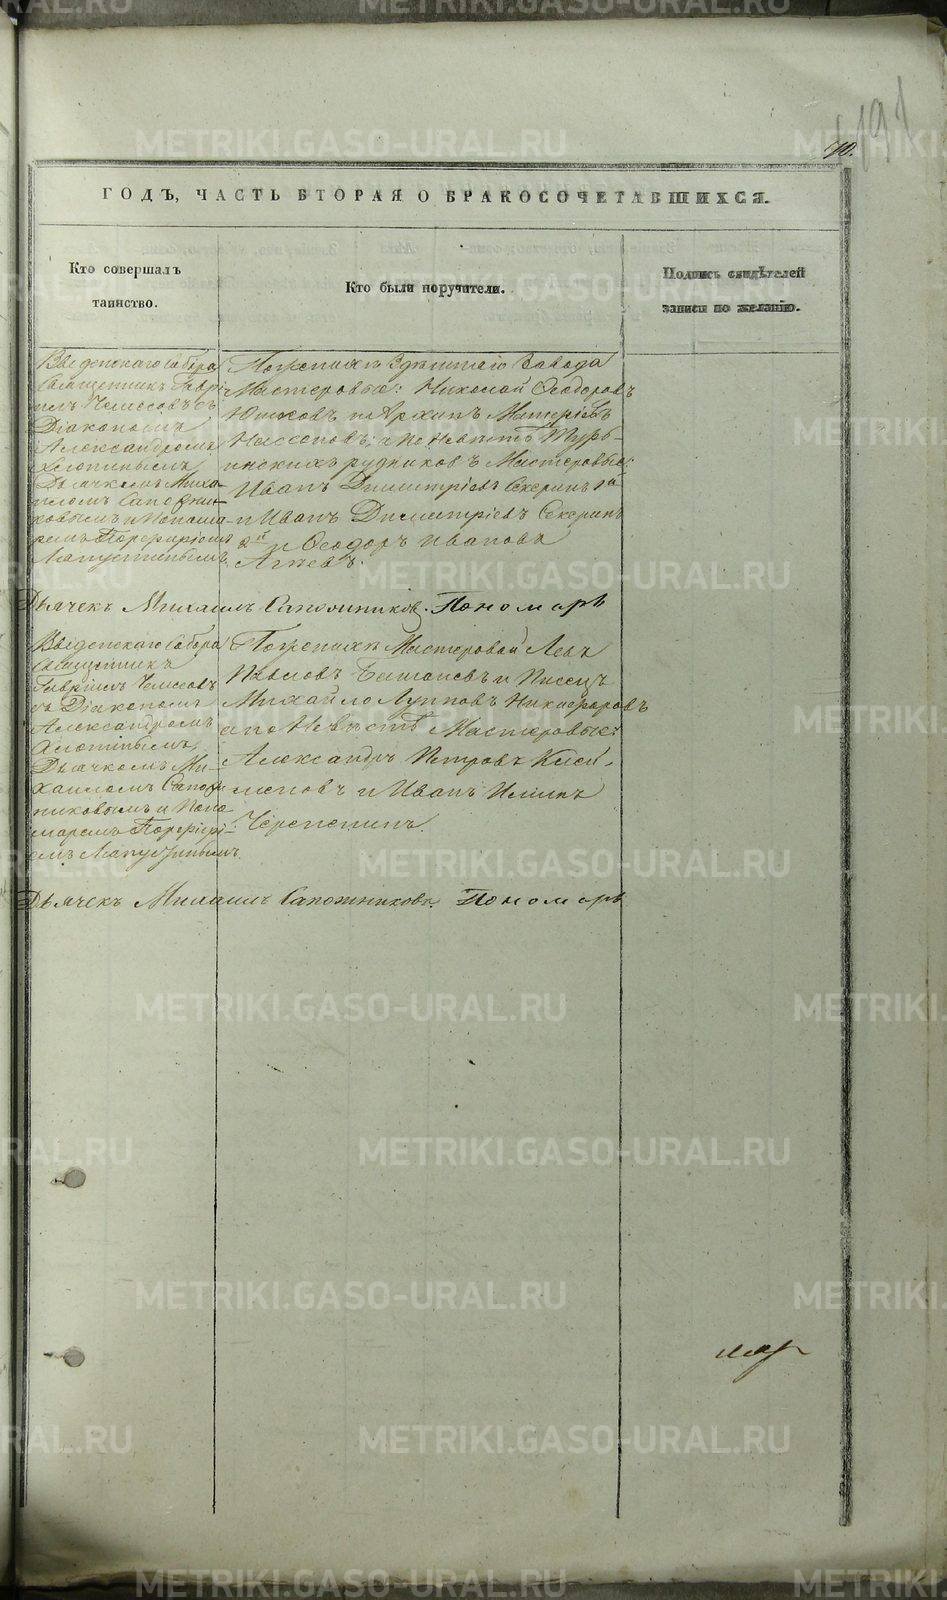 METRIKI.GASO-URAL.RU
191
70.
ГОДЪ, ЧАСТЬ ВТОРАЯ О БРАКОСОЧЕТАВШИХСЯ.
Кто совершалъ
таинство.
Кто были поручители.
Подпись свидѣтелей
записи по желанію.
Введенскаго Собора
Священникъ Гаврі-
илъ Челюсовъ съ
Діакономъ
Александромъ
Дьячкомъ Миха-
иломъ Сапожни-
ковымъ и Понома-
ремъ Порфиріемъ
Лапустинымъ.
По женихѣ Здѣшняго Завода
Мастеровые: Николай Ѳеодоровъ
и Архипъ
а по невѣстѣ Турь-
инскихъ рудниковъ Мастеровые:
Иванъ Димитріевъ Секеринъ 1й
и Иванъ Димитріевъ Секеринъ
2й и Ѳеодоръ Ивановъ
Дьячекъ Михаилъ Сапожниковъ. Пономарь
Введенскаго Собора
Священникъ
Гавріилъ Челюсовъ
съ Діакономъ
Александромъ
Дьячкомъ Ми-
хаиломъ Сапож-
никовымъ и Поно-
маремъ Порфирі-
емъ Лапустинымъ.
По женихѣ Мастеровой Левъ
Павловъ и Писецъ
Михайло Лупповъ Никифоровъ
а по Невѣстѣ Мастеровые:
Александръ Петровъ Кисе-
левъ и Иванъ Ильинъ
Черепенинъ.
Дьячекъ Михаилъ Сапожниковъ. Пономарь